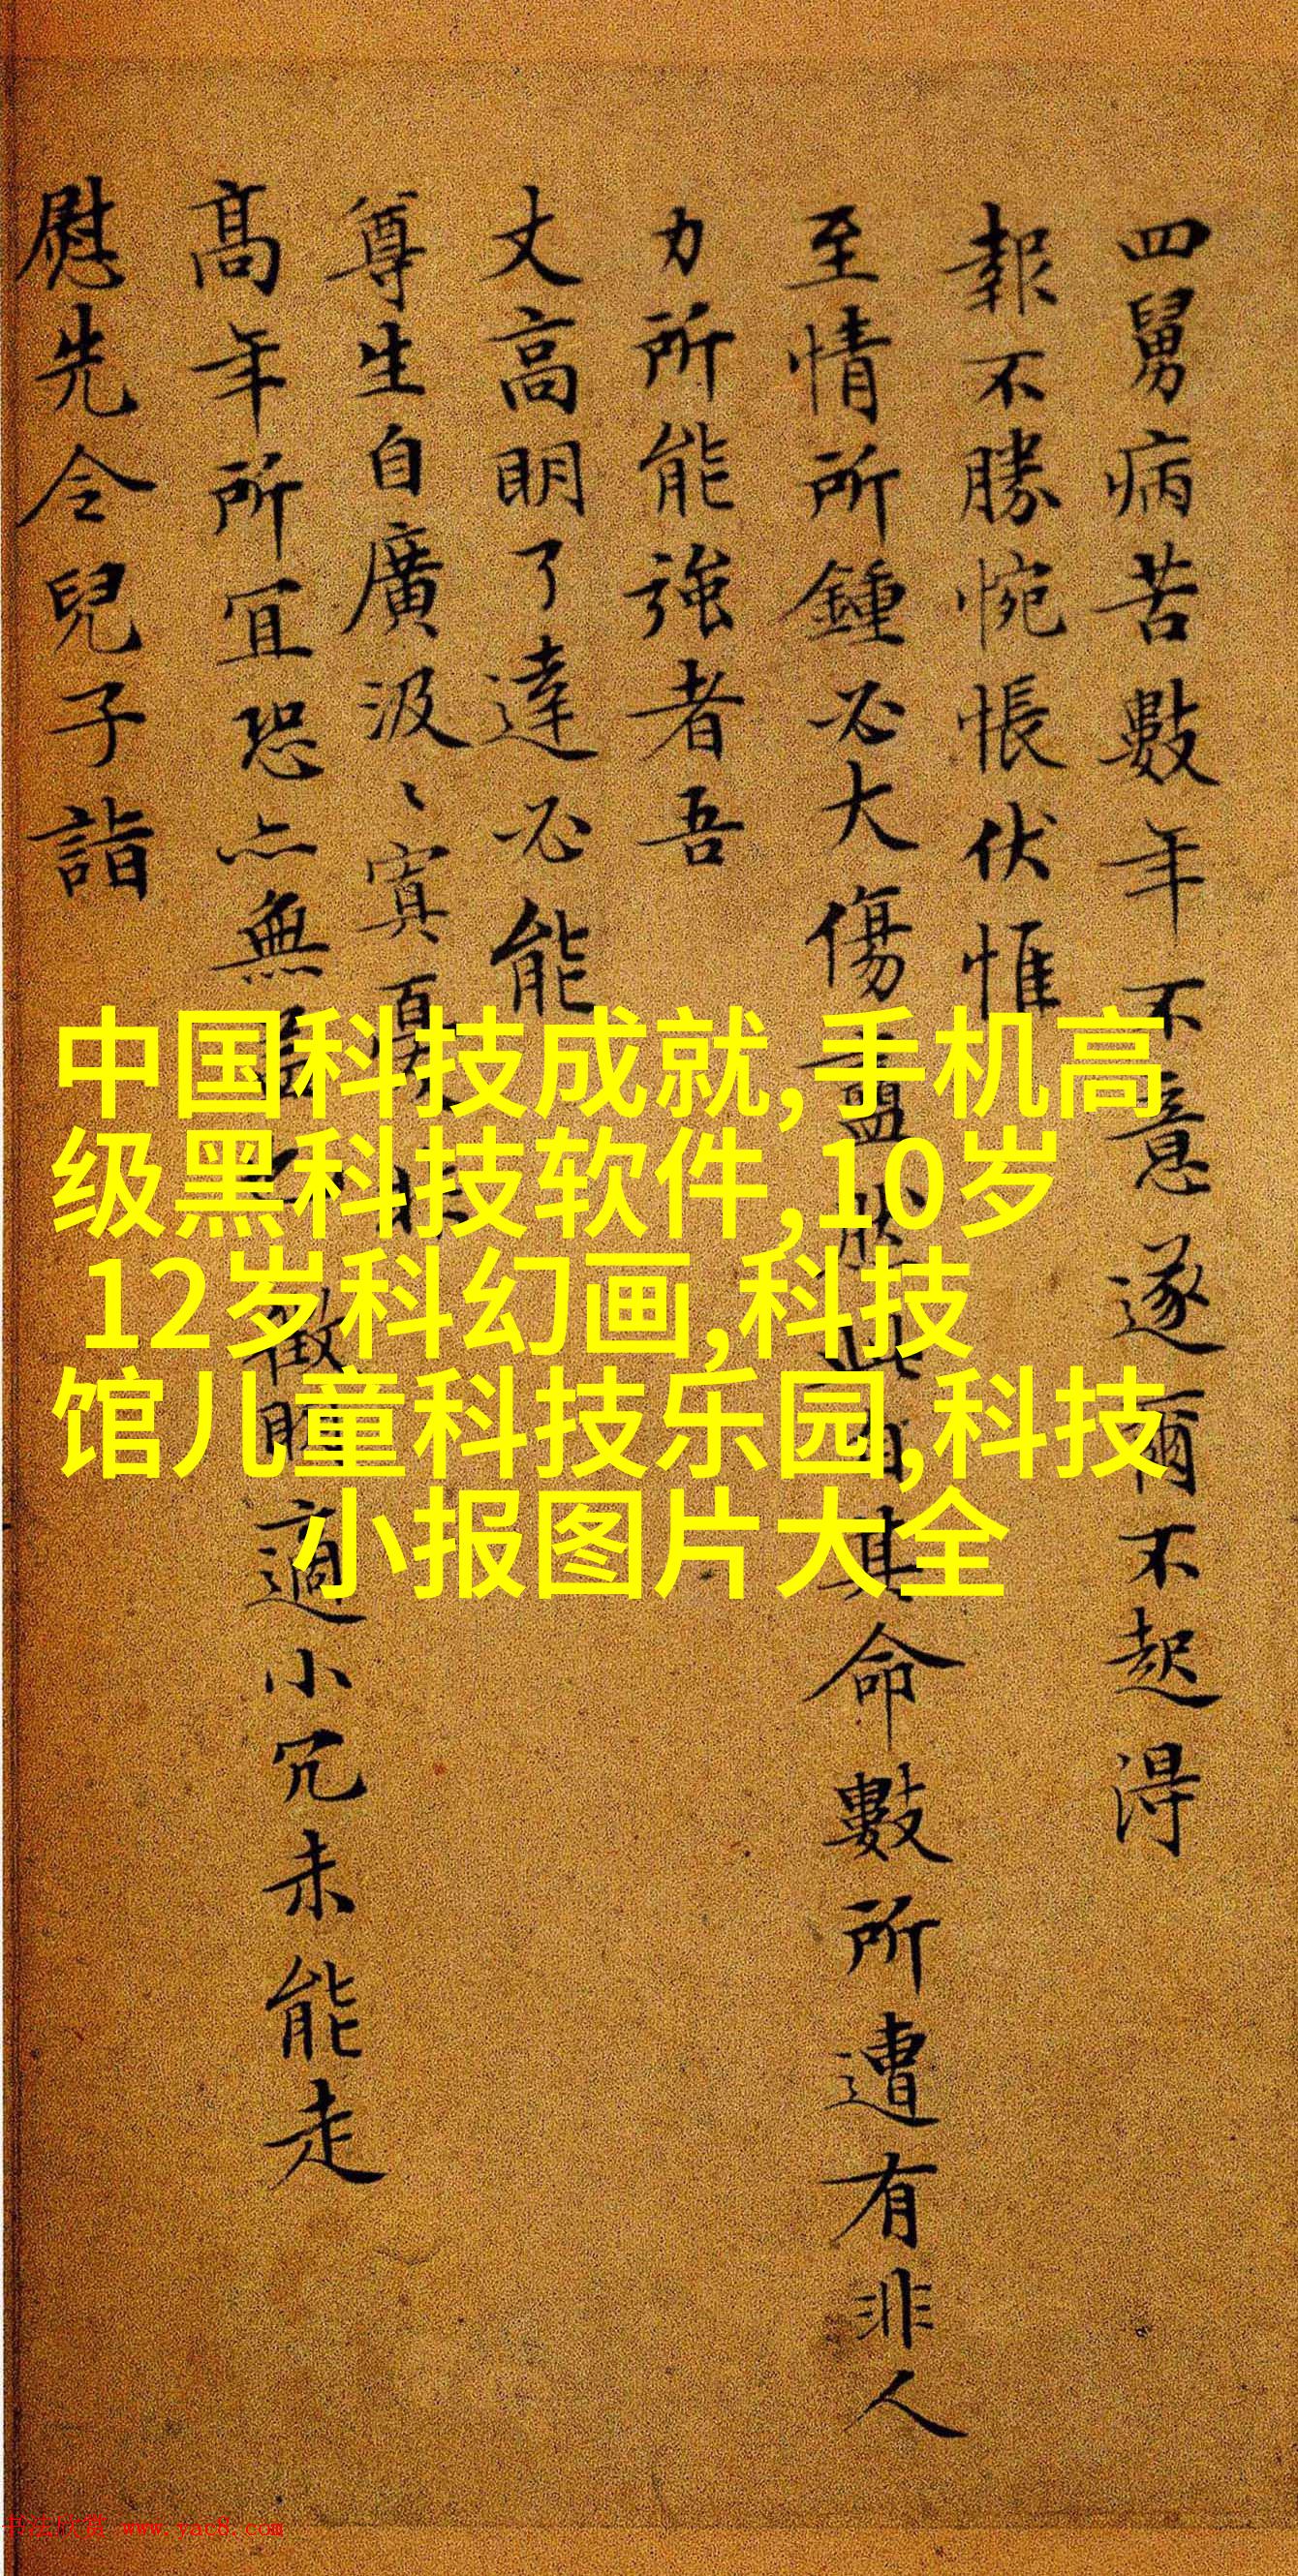 四舅病苦數年不意遂爾不起得
報不勝惋悵伏惟
至情所鍾必大傷此其命數所遭有非人
力所能強者吾
丈高明了達必能
尊生自廣汲〻寘憂
高年所宜恐亦無適小冗未能走
慰先令兒子詣
中国科技成就,手机高
级黑科技软件,10岁
12岁科幻画,科技
馆儿童科技乐园,科技
小报图片大全
书法欣赏 www.yac8.com